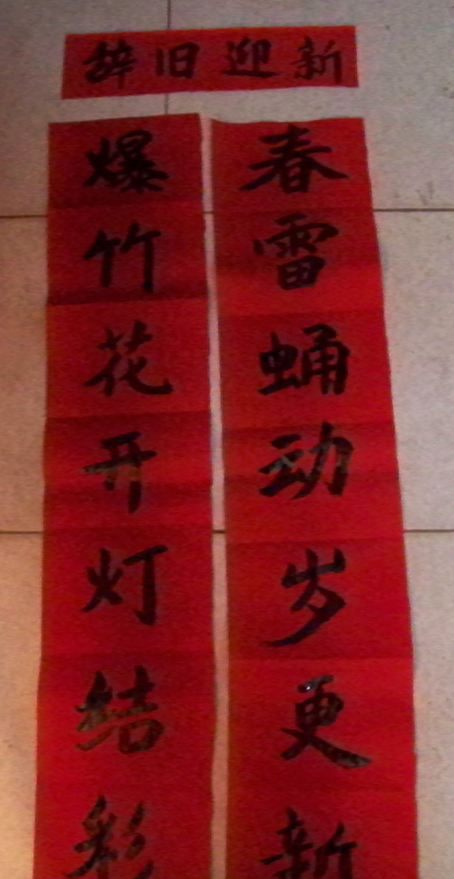 辞旧迎新
春雷蛹动岁更新
爆竹花开灯结彩